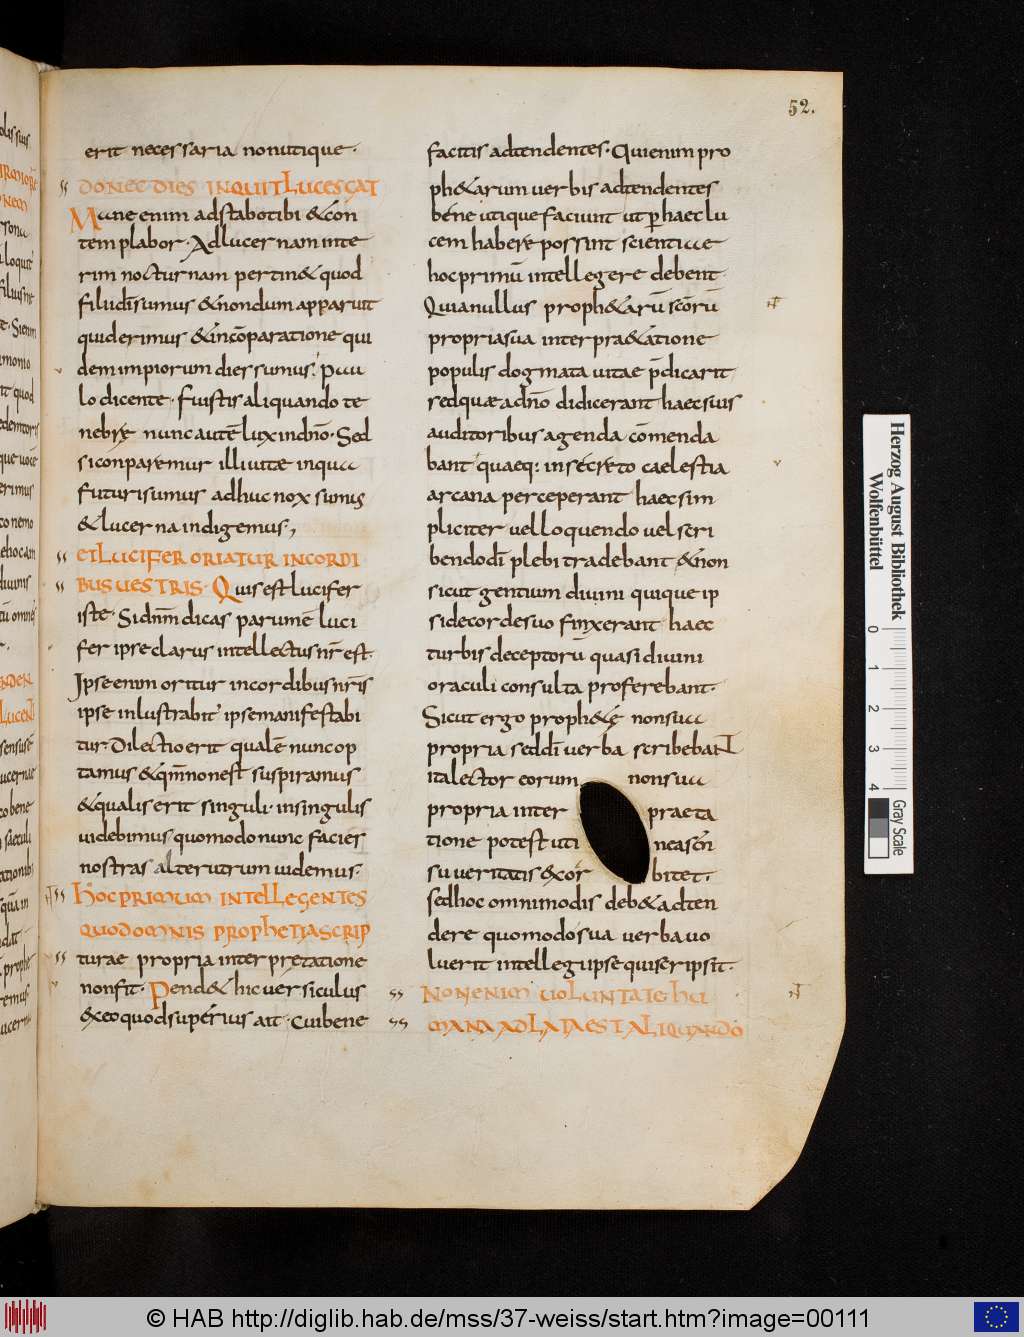 52.
erit necessaria nonutique.
DONEC DIES INQUIT LUCESCAT
Mane enim adstabo tibi & con
templabor. Ad lucernam inte
rim nocturnam pertin& quod
filii diei sumus & nondum apparuit
quid erimus & incōparatione qui
dem impiorum dies sumus. Pau
lo dicente. Fuistis aliquando te
nebrę nunc autē lux in dn̄o. Sed
si conparemur illi uitae in qua
futuri sumus adhuc nox sumus
& lucerna indigemus,
ET LUCIFER ORIATUR IN CORDI
BUS UESTRIS. Quis est lucifer
iste. Si dn̄m dicas parum ē luci
fer ipse clarus intellectus nr̄ est.
Ipse enim oritur in cordibus nr̄is
ipse inlustrabit ipse manifestabi
tur. Dilectio erit qualē nunc op
tamus & qm̄ non est suspiramus
& qualis erit singuli in singulis
uidebimus quomodo nunc facier
nostras alterutrum uidemus.
HOC PRIMUM INTELLEGENTES
QUOD OMNIS PROPHETIA SCRIP
turae propria interpretatione
non fit. Pend& hic uersiculus
ex eo quod superius ait. Cui bene
facitis adtendentes. Qui enim pro
ph&arum uerbis adtendentes
bene utique faciunt ut p̄ haec lu
cem habere possint scientiae
hoc primū intellegere debent
Quia nullus proph&arū scōrū
propria sua interpra&atione
populis dogmata uitae p̄dicarit
sed quae a dn̄o didicerant haec suis
auditoribus agenda cōmenda
bant quaeq: in secreto caelestia
arcana perceperant haec sim
pliciter uel loquendo uel scri
bendo dī plebi tradebant & non
sicut gentium diuini qui que ip
si de corde suo finxerant haec
turbis deceptorū quasi diuini
oraculi consulta proferebant.
Sicut ergo proph&ę non sua
propria sed dī uerba scribebaNT
ita lector eorum non sua
propria inter praeta
tione potest uti ne a sen
su ueritatis exor bitet.
sed hoc omnimodis deb& adten
dere quomodo sua uerba uo
luerit intellegi ipse qui scripsit.
NON ENIM UOLUNTATE HU
MANA ADLATA EST ALIQUANDO
Herzog August Bibliothek
Wolfenbüttel
0 1 2 3 4
Gray Scale
© HAB http://diglib.hab.de/mss/37-weiss/start.htm?image=00111